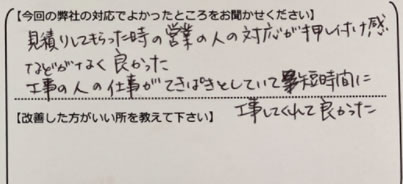 【今回の弊社の対応でよかったところをお聞かせください】
見積りしてもらった時の営業の人の対応が押し付け感
などがなく良かった
工事の人の仕事がてきぱきとしていて短時間に
工事してくれて良かった
【改善した方がいい所を教えて下さい】